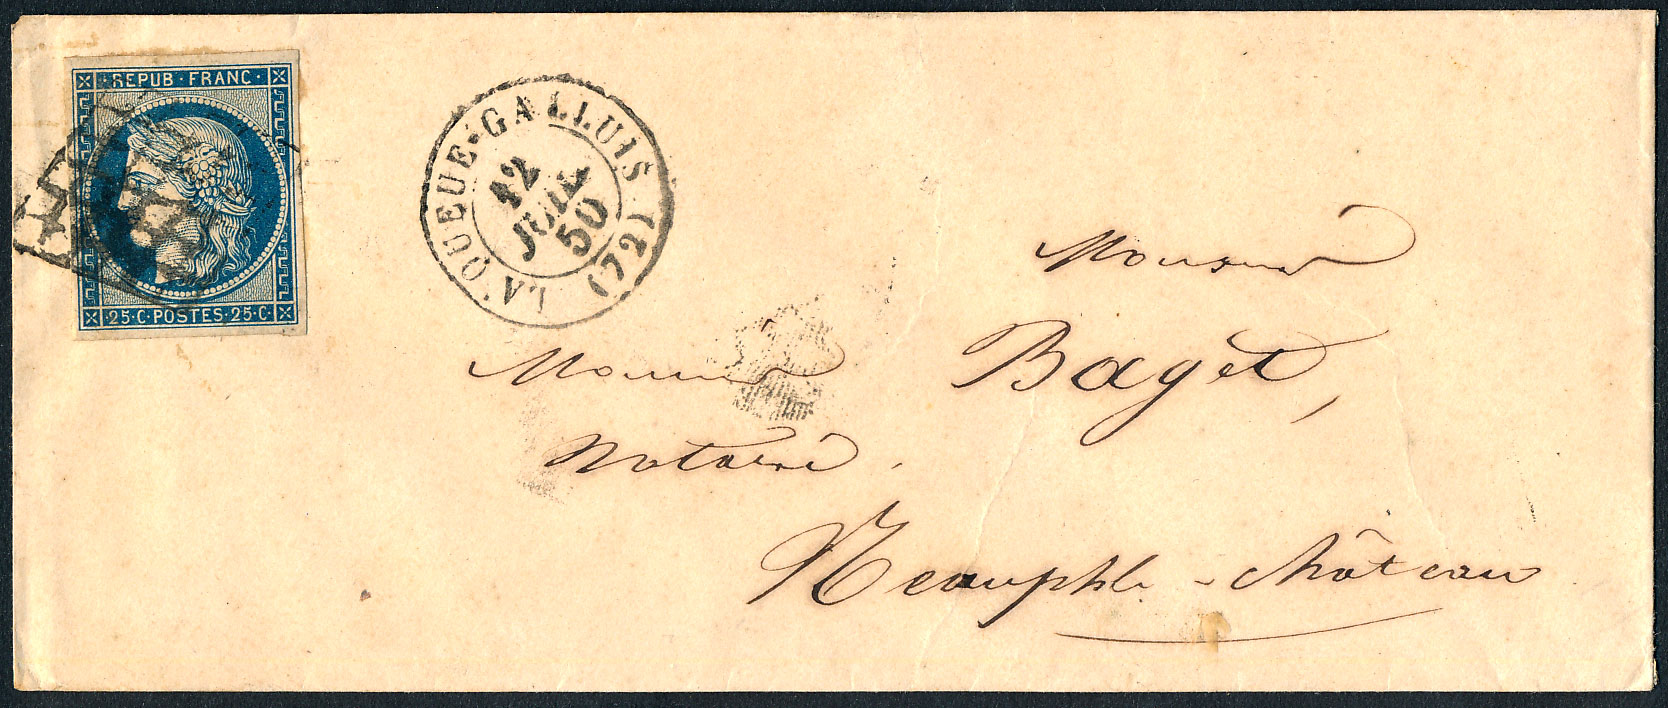 REPUB · FRANC ·
25 · C · POSTES · 25 · C ·
LA QUEUE-GALLUIS (72)
12
JUIL
50
Monsieur
Monsieur Baget,
Notaire.
Neauphle-château